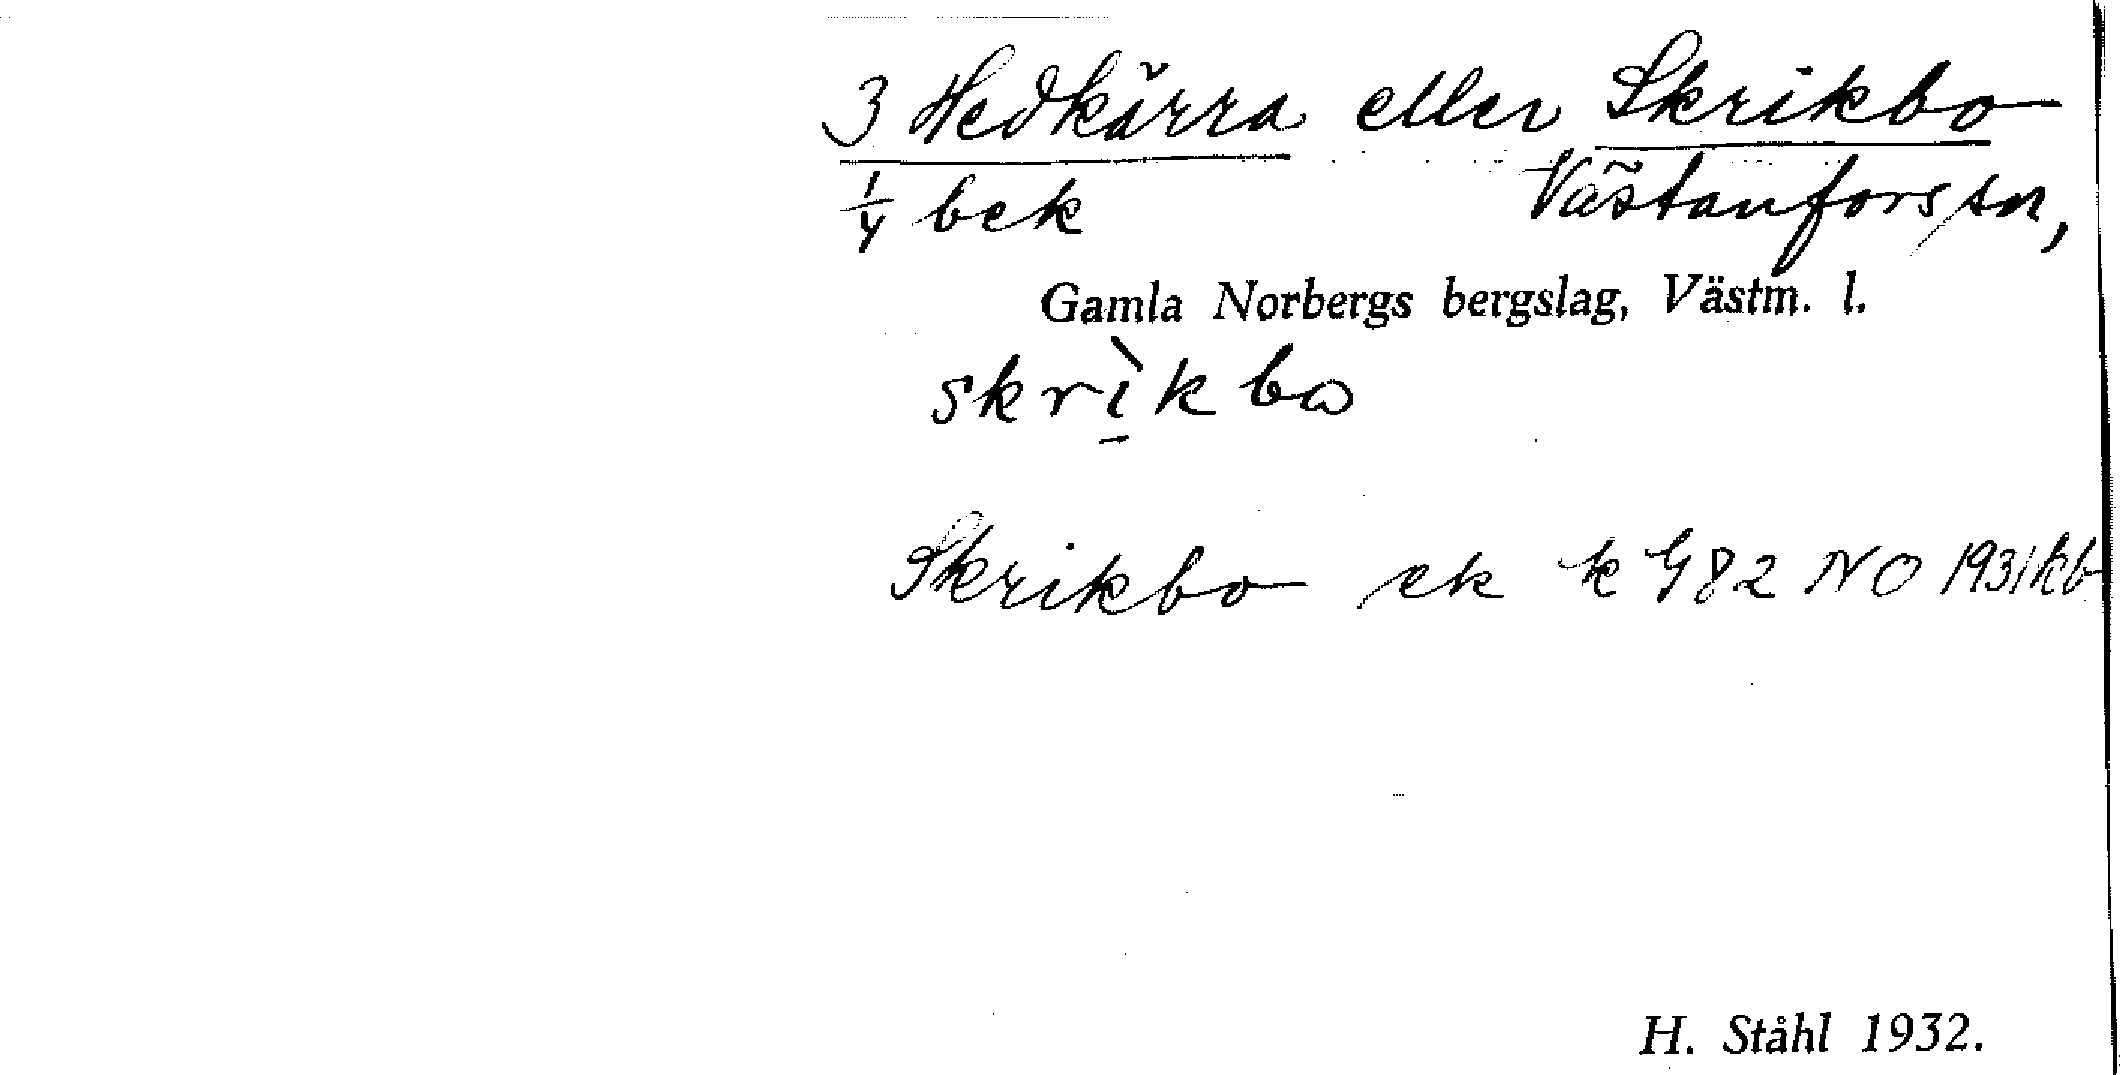 3 Hedkärra eller Skrikbo
1/4 bek Västanfors sn,
Gamla Norbergs bergslag, Västm. l.
skrìkbo
Skrikbo ek k G82 NO 1931 kb
H. Ståhl 1932.